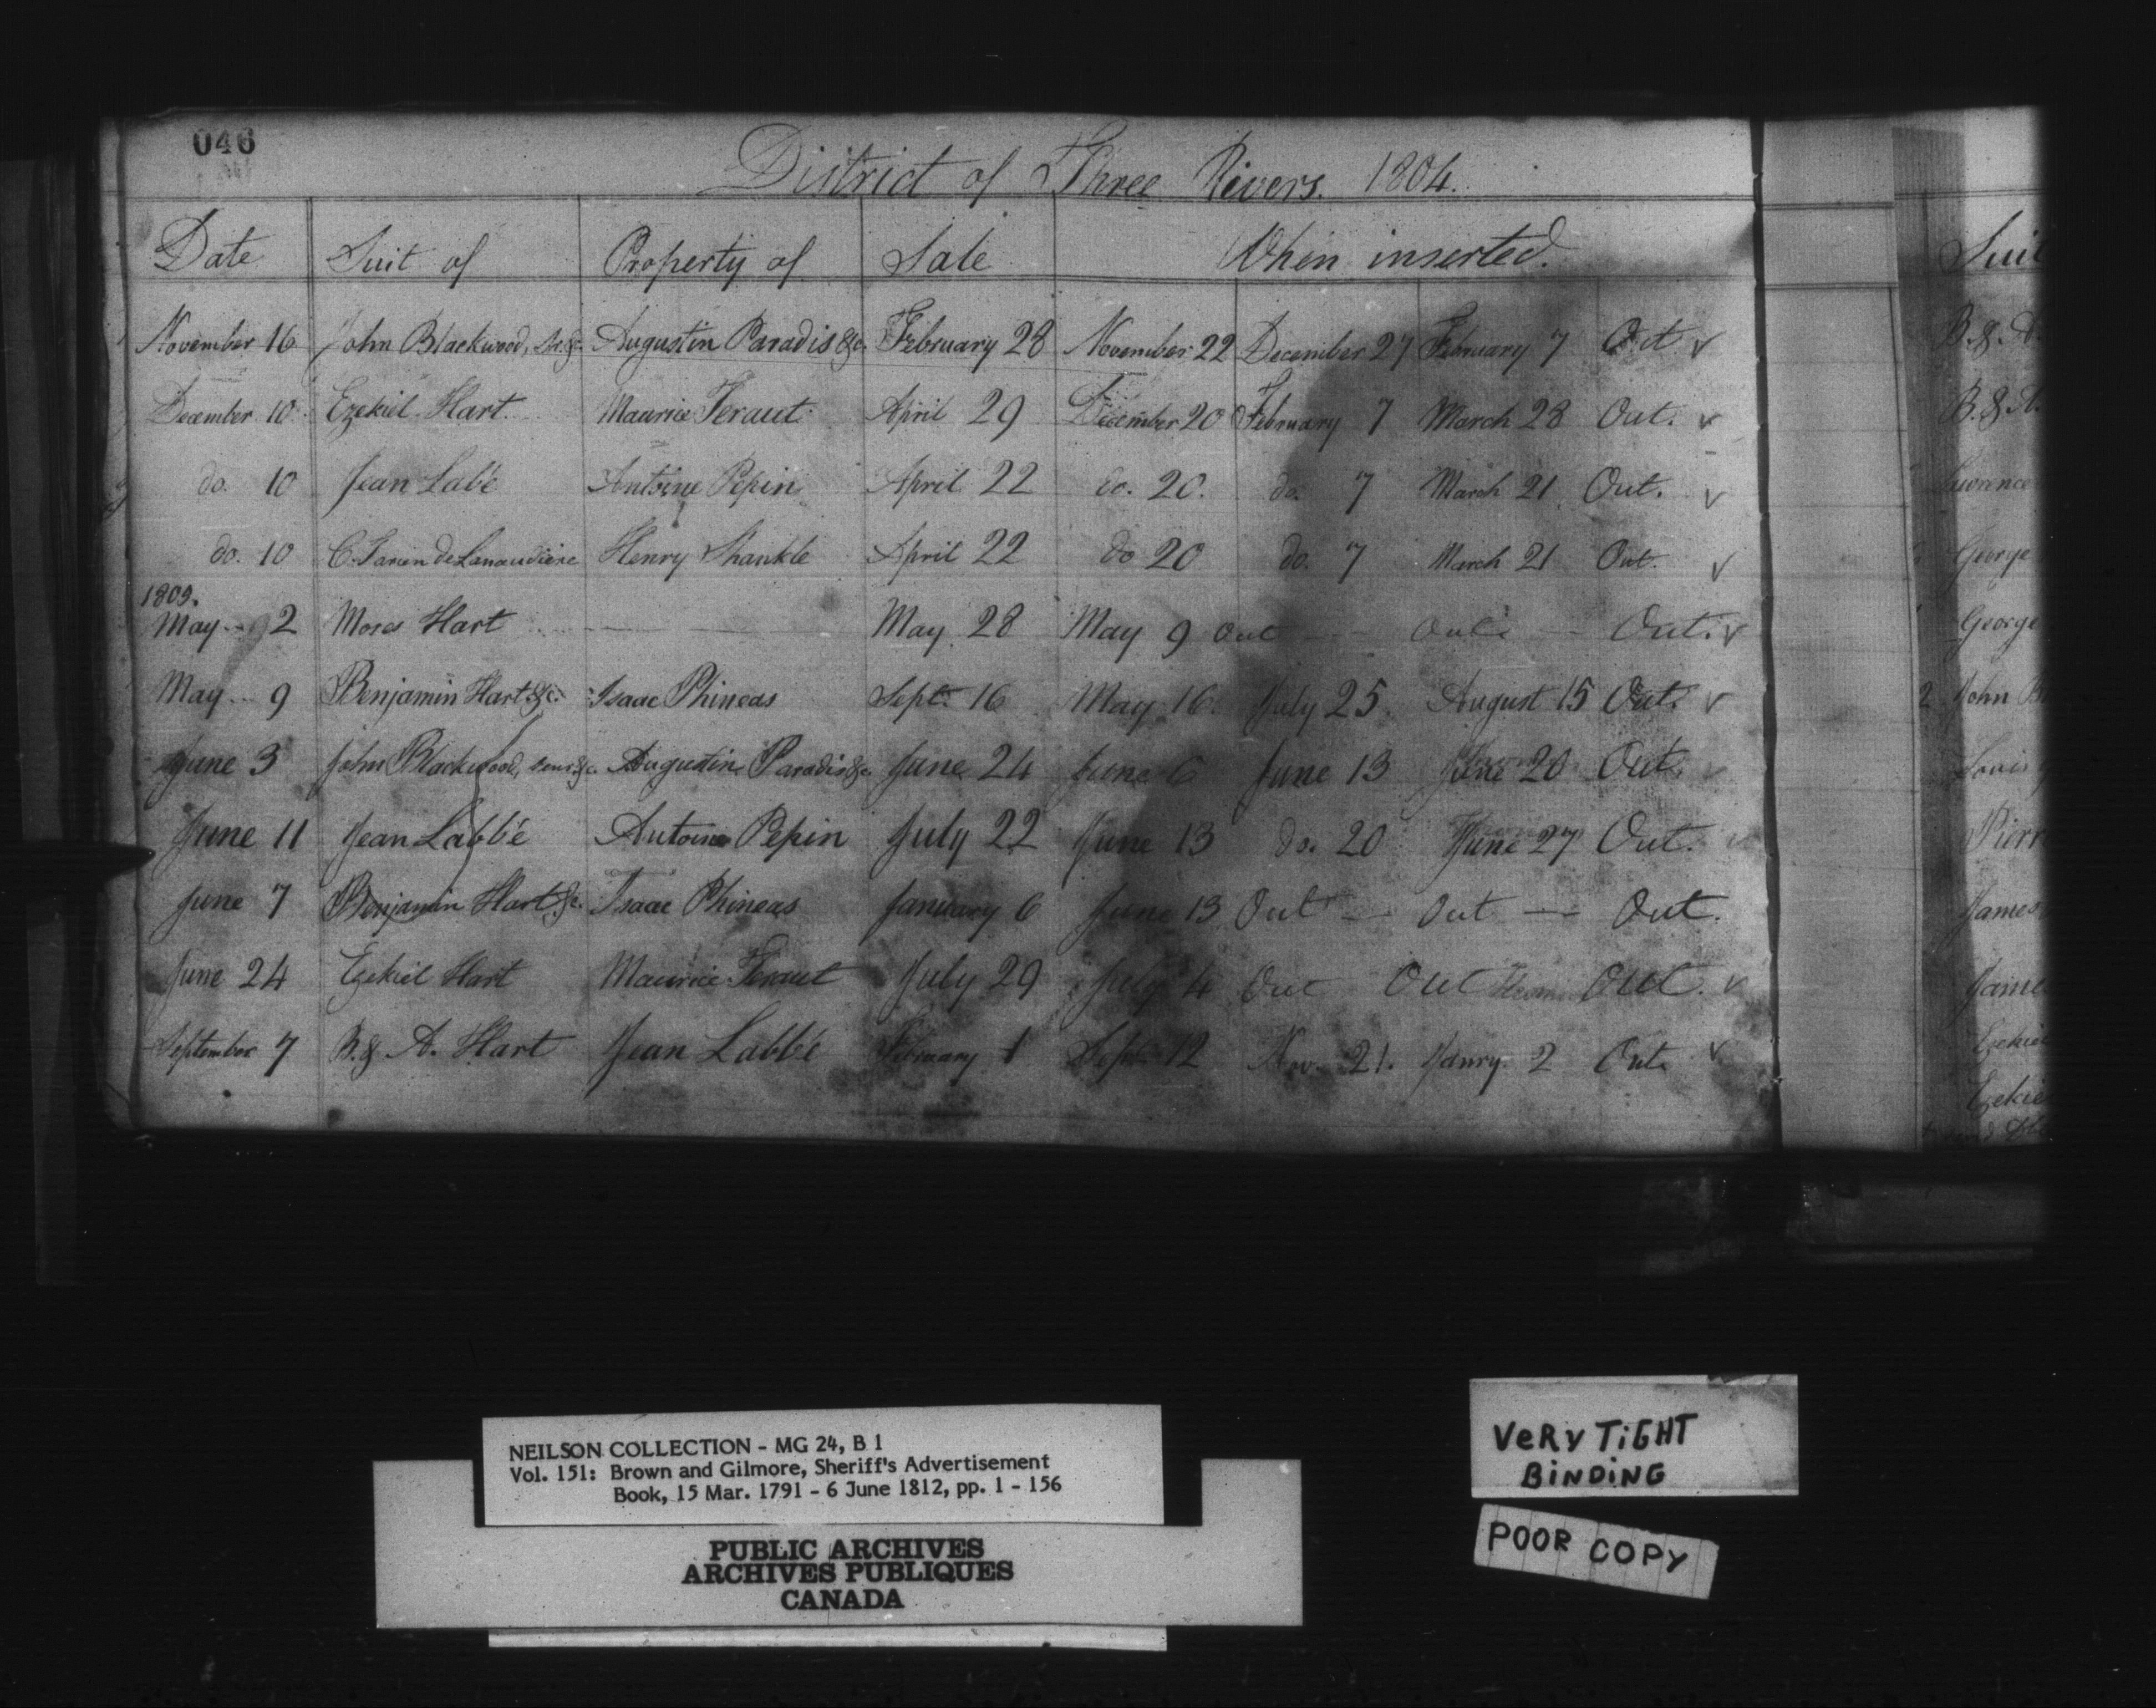 046
District of Three Rivers. 1804.
Date Suit of Property of Sale When inserted.
November 16 John Blackwood, Sr. &c. Augustin Paradis &c. February 28 November 22 December 27 February 7 Out
December 10 Ezekiel Hart Maurice Feraut April 29 December 20 February 7 March 28 Out.
do. 10 Jean Labé Antoine Pepin April 22 do. 20. do. 7 March 21 Out.
do. 10 C. de Lanaudiere Henry Shankle April 22 do 20 do. 7 March 21 Out.
1805.
May 2 Moses Hart May 28 May 9 Out — Out — Out.
May 9 Benjamin Hart &c. Isaac Phineas Sept. 16 May 16. July 25. August 15 Out.
June 3 John Blackwood, senr &c. Augustin Paradis &c. June 24 June 6 June 13 June 20 Out.
June 11 Jean Labbé Antoine Pepin July 22 June 13 do. 20 June 27 Out.
June 7 Benjamin Hart &c. Isaac Phineas January 6 June 13 Out — Out — Out.
June 24 Ezekiel Hart Maurice Feraut July 29 July 4 Out Out Out.
September 7 B. & A. Hart Jean Labbé February 1 Sept. 12 Nov. 21. Janry. 2 Out.
Suit
B. & A.
B. & A.
George
George
2 John
Louis
James
Jame
Ezekiel
Ezekie
NEILSON COLLECTION - MG 24, B 1
Vol. 151: Brown and Gilmore, Sheriff's Advertisement
Book, 15 Mar. 1791 - 6 June 1812, pp. 1 - 156
PUBLIC ARCHIVES
ARCHIVES PUBLIQUES
CANADA
VERY TIGHT
BINDING
POOR COPY